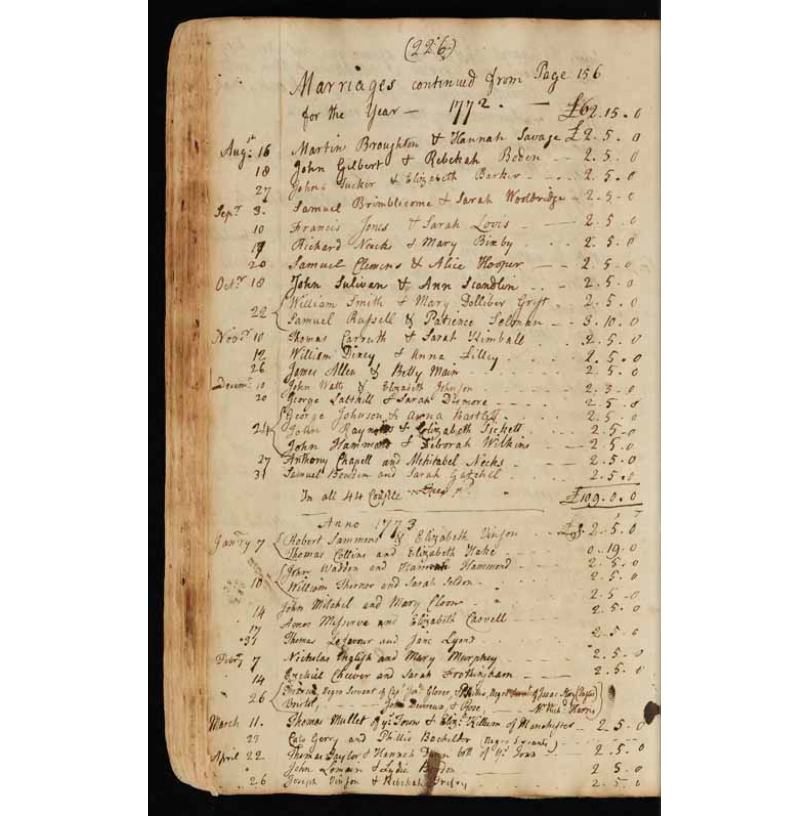 (226)
Marriages continued from Page 156
for the Year — 1772. — £62.15.0
Augt 16 Martin Broughton & Hannah Savage £2.5.0
18 John Gilbert & Rebekah Boden -- 2.5.0
27 John Tucker & Elizabeth Barker - - 2.5.0
Sept 3. Samuel Brimblecome & Sarah Wooldridge - 2.5.0
10 Francis Jones & Sarah Lovis - - 2.5.0
Richard Necks & Mary Bixby . . . 2.5.0
20 Samuel Clemens & Alice Hooper — — 2.5.0
Octr 18 John Sulivan & Ann Scandlin . . - 2.5.0
22 William Smith & Mary Dolliber Grist . 2.5.0
Samuel Russell & Patience - - 3.10.0
Novr 10 Thomas & Sarah Kimball . . 2.5.0
12 William Dixey & Anna Lilley . . . . 2.5.0
26 James Allen & Betty Main . . . . 2.5.0
Decemr 10 John Watts & Elizabeth Johnson - - - - 2.5.0
20 George & Sarah Dismore - - - - 2.5.0
24 George Johnson & Anna Bartlett . . . 2.5.0
John Raynolds & Elizabeth Pickett . . . 2.5.0
John Hammond & Deborah Wilkins — - 2.5.0
27 Anthony Chapell and Mehitabel Necks - - 2.5.0
31 Samuel Bowden and Sarah Gatchel . . . 2.5.0
In all 44 Couple £109.0.0
Anno 1773
Janry 7 Robert Sammons & Elizabeth Vinson - - 2.5.0
Thomas Collins and Elizabeth - - - 0.19.0
John Wadden and Hannah Hammond - - 2.5.0
10 William Thorner and Sarah - - - 2.5.0
14 John Mitchel and Mary Cloon - - - 2.5.0
17 Amos and Elizabeth - - - 2.5.0
31 Thomas Lefavour and Jane Lyons - - - 2.5.0
Febry 7 Nicholas English and Mary Murphey - - - 2.5.0
14 Ezekiel Cheever and Sarah Frothingham - - - 2.5.0
26 Negro Servant of Capt Glover, Negro of Isaac
Bristol,
March 11. Thomas Mullet of ye Town & Eliza Killum of Manchester - 2.5.0
23 Cato Gerry and Phillis Bachelder (Negro Servants)
April 22 Thomas Taylor & Hannah both of ye Town - 2.5.0
John & Lydia Bowden - - - 2.5.0
26 Joseph Vinson & Rebekah - - - 2.5.0